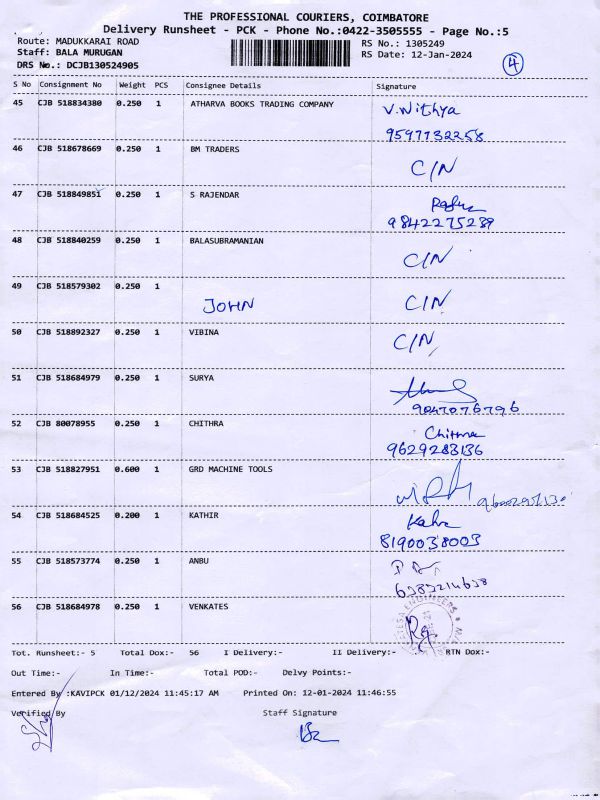 THE PROFESSIONAL COURIERS, COIMBATORE
Delivery Runsheet - PCK - Phone No.:0422-3505555 - Page No.:5
Route: MADUKKARAI ROAD
RS No.: 1305249
Staff: BALA MURUGAN
RS Date: 12-Jan-2024
4
DRS No.: DCJB130524905
S No Consignment No Weight PCS Consignee Details Signature
45 CJB 518834380 0.250 1 ATHARVA BOOKS TRADING COMPANY V.Nithya
9597732258
46 CJB 518678669 0.250 1 BM TRADERS C/N
47 CJB 518849851 0.250 1 S RAJENDAR
9842275239
48 CJB 518840259 0.250 1 BALASUBRAMANIAN C/N
49 CJB 518579302 0.250 1
JOHN C/N
50 CJB 518892327 0.250 1 VIBINA C/N
51 CJB 518684979 0.250 1 SURYA
9047076796
52 CJB 80078955 0.250 1 CHITHRA Chithra
9629283136
53 CJB 518827951 0.600 1 GRD MACHINE TOOLS
54 CJB 518684525 0.200 1 KATHIR
8190038003
55 CJB 518573774 0.250 1 ANBU
56 CJB 518684978 0.250 1 VENKATES
Tot. Runsheet:- 5 Total Dox:- 56 I Delivery:- II Delivery:- RTN Dox:-
Out Time:- In Time:- Total POD:- Delvy Points:-
Entered By :KAVIPCK 01/12/2024 11:45:17 AM Printed On: 12-01-2024 11:46:55
Verified By Staff Signature